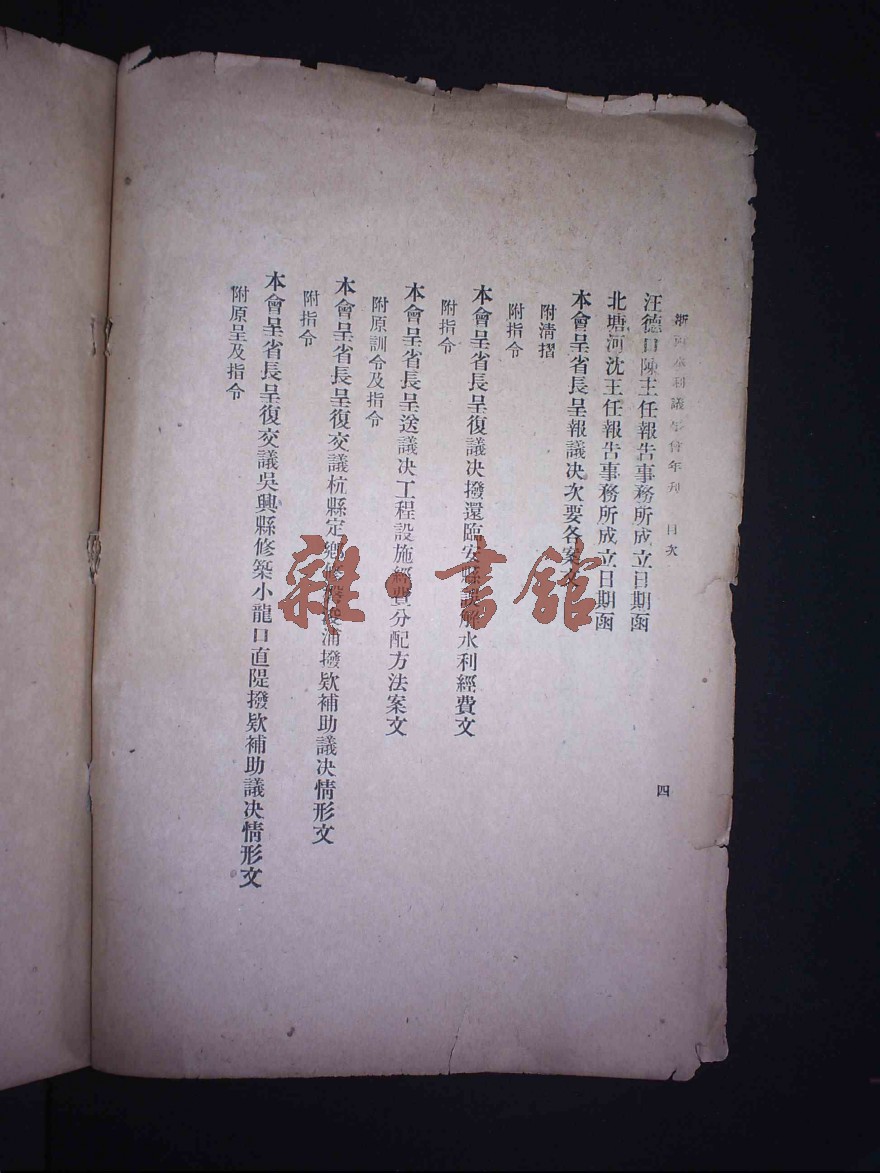 浙西水利議事會年刊 目次
四
汪德口陳主任報告事務所成立日期函
北塘河沈王任報告事務所成立日期函
本會呈省長呈報議决次要各案文
附清摺
附指令
本會呈省長呈復議决撥還臨安縣解水利經費文
附指令
本會呈省長呈送議决工程設施經費分配方法案文
附原訓令及指令
本會呈省長呈復交議杭縣定鄉浦撥欵補助議决情形文
附指令
本會呈省長呈復交議吳興縣修築小龍口直隄撥欵補助議决情形文
附原呈及指令
雜·書館